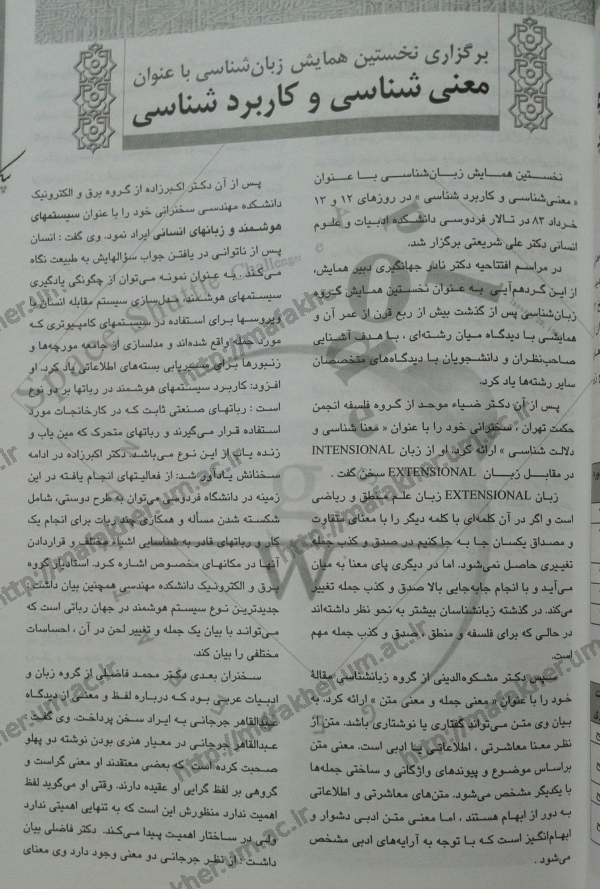 برگزاری نخستین همایش زبان‌شناسی با عنوان
معنی شناسی و کاربرد شناسی
نخستین همایش زبان‌شناسی با عنوان
« معنی‌شناسی و کاربرد شناسی » در روزهای ۱۲ و ۱۳
خرداد ۸۳ در تالار فردوسی دانشکده ادبیات و علوم
انسانی دکتر علی شریعتی برگزار شد.
در مراسم افتتاحیه دکتر نادر جهانگیری دبیر همایش،
از این گردهم‌آیی به عنوان نخستین همایش گروه
زبان‌شناسی پس از گذشت بیش از ربع قرن از عمر آن و
همایشی با دیدگاه میان رشته‌ای ، با هدف آشنایی
صاحب‌نظران و دانشجویان با دیدگاه‌های متخصصان
سایر رشته‌ها یاد کرد.
پس از آن دکتر ضیاء موحد از گروه فلسفه انجمن
حکمت تهران ، سخنرانی خود را با عنوان « معنا شناسی و
دلالت شناسی » ارائه کرد. او از زبان INTENSIONAL
در مقابل زبان EXTENSIONAL سخن گفت .
زبان EXTENSIONAL زبان علم منطق و ریاضی
است و اگر در آن کلمه‌ای با کلمه دیگر را با معنای متفاوت
و مصداق یکسان جا به جا کنیم در صدق و کذب جمله
تغییری حاصل نمی‌شود. اما در دیگری پای معنا به میان
می‌آید و با انجام جابه‌جایی بالا صدق و کذب جمله تغییر
می‌کند. در گذشته زبانشناسان بیشتر به نحو نظر داشته‌اند
در حالی که برای فلسفه و منطق ، صدق و کذب جمله مهم
است.
سپس دکتر مشکوه‌الدینی از گروه زبانشناسی مقالهٔ
خود را با عنوان « معنی جمله و معنی متن » ارائه کرد. به
بیان وی متن می‌تواند گفتاری یا نوشتاری باشد. متن از
نظر معنا معاشرتی ، اطلاعاتی یا ادبی است. معنی متن
براساس موضوع و پیوندهای واژگانی و ساختی جمله‌ها
با یکدیگر مشخص می‌شود. متن‌های معاشرتی و اطلاعاتی
به دور از ابهام هستند ، اما معنی متن ادبی دشوار و
ابهام‌انگیز است که با توجه به آرایه‌های ادبی مشخص
می‌شود .
پس از آن دکتر اکبرزاده از گروه برق و الکترونیک
دانشکده مهندسی سخنرانی خود را با عنوان سیستمهای
هوشمند و زبانهای انسانی ایراد نمود. وی گفت : انسان
پس از ناتوانی در یافتن جواب سؤالهایش به طبیعت نگاه
می‌کند . به عنوان نمونه می‌توان از چگونگی یادگیری
سیستمهای هوشمند، مدل‌سازی سیستم مقابله انسان با
ویروسها برای استفاده در سیستمهای کامپیوتری که
مورد حمله واقع شده‌اند و مدلسازی از جامعه مورچه‌ها و
زنبورها برای مسیریابی بسته‌های اطلاعاتی یاد کرد. او
افزود: کاربرد سیستمهای هوشمند در رباتها بر دو نوع
است : رباتهای صنعتی ثابت که در کارخانجات مورد
استفاده قرار می‌گیرند و رباتهای متحرک که مین یاب و
زنده یاب از این نوع می‌باشد. دکتر اکبرزاده در ادامه
سخنانش یادآور شد: از فعالیتهای انجام یافته در این
زمینه در دانشگاه فردوسی می‌توان به طرح دوستی، شامل
شکسته شدن مسأله و همکاری چند ربات برای انجام یک
کار و رباتهای قادر به شناسایی اشیاء مختلف و قراردادن
آنها در مکانهای مخصوص اشاره کرد. استادیار گروه
برق و الکترونیک دانشکده مهندسی همچنین بیان داشت :
جدیدترین نوع سیستم هوشمند در جهان رباتی است که
می‌تواند با بیان یک جمله و تغییر لحن در آن ، احساسات
مختلفی را بیان کند.
سخنران بعدی دکتر محمد فاضلی از گروه زبان و
ادبیات عربی بود که درباره لفظ و معنی از دیدگاه
عبدالقاهر جرجانی به ایراد سخن پرداخت. وی گفت :
عبدالقاهر جرجانی در معیار هنری بودن نوشته دو پهلو
صحبت کرده است که بعضی معتقدند او معنی گراست و
گروهی بر لفظ گرایی او عقیده دارند. وقتی او می‌گوید لفظ
اهمیت ندارد منظورش این است که به تنهایی اهمیتی ندارد
ولی در ساختار اهمیت پیدا می‌کند. دکتر فاضلی بیان
داشت : از نظر جرجانی دو معنی وجود دارد وی معنای
http://mafakher.um.ac.ir